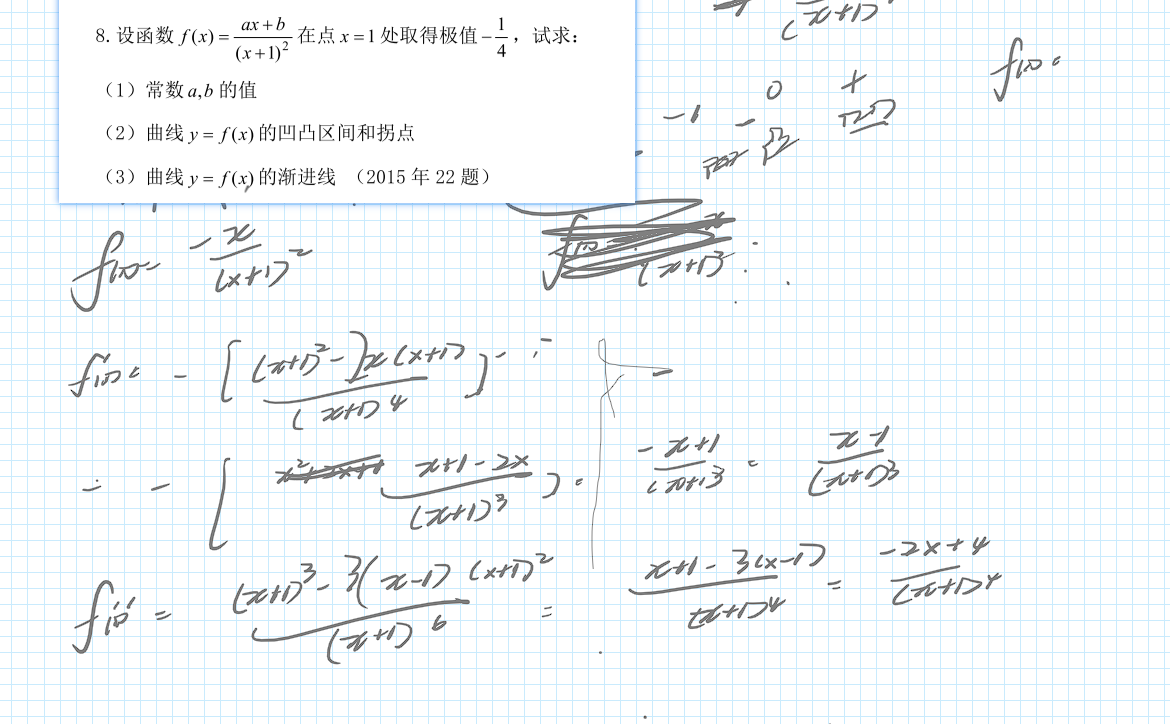 8. 设函数 f(x) = (ax+b)/(x+1)² 在点 x=1 处取得极值 -1/4，试求：
（1）常数 a,b 的值
（2）曲线 y = f(x) 的凹凸区间和拐点
（3）曲线 y = f(x) 的渐进线 （2015 年 22 题）
(x+1)
f(x)=
0 +
-1 -
f(x)= -x/(x+1)²
(x+1)³
f'(x)= - [ ((x+1)² - 2x(x+1))/(x+1)⁴ ]
= - [ (x+1-2x)/(x+1)³ ] = (-x+1)/(x+1)³ = (x-1)/(x+1)³
f''(x) = ((x+1)³ - 3(x-1)(x+1)²)/(x+1)⁶ = (x+1-3(x-1))/(x+1)⁴ = (-2x+4)/(x+1)⁴